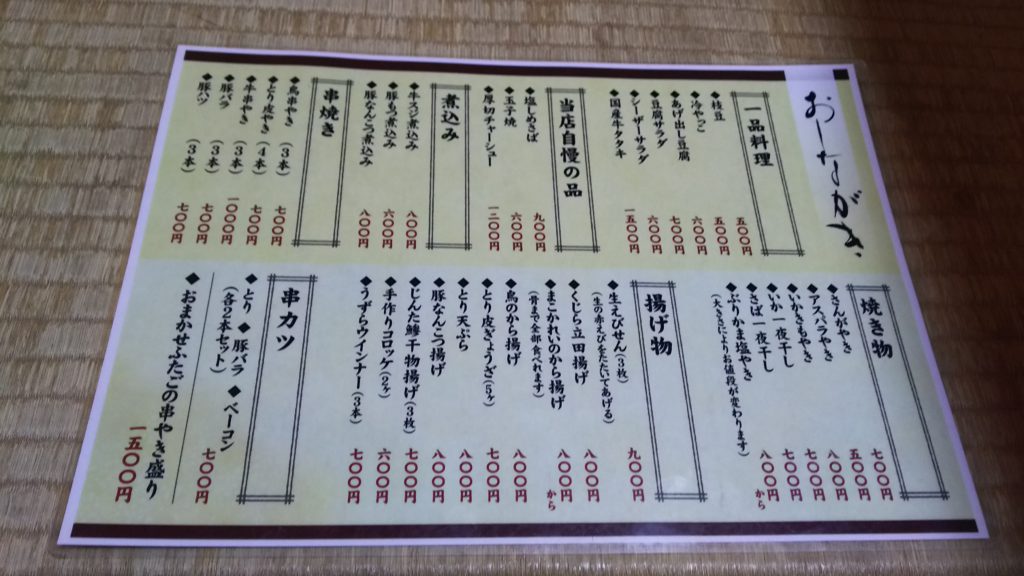 おしながき
一品料理
◆枝豆 五〇〇円
◆冷やっこ 五〇〇円
◆あげ出し豆腐 六〇〇円
◆豆腐サラダ 七〇〇円
◆シーザーサラダ 六〇〇円
◆国産牛タタキ 一五〇〇円
当店自慢の品
◆塩じめさば 九〇〇円
◆玉子焼 六〇〇円
◆厚切チャーシュー 一二〇〇円
煮込み
◆牛スジ煮込み 八〇〇円
◆豚もつ煮込み 六〇〇円
◆豚なんこつ煮込み 八〇〇円
串焼き
◆鳥串やき（3本） 七〇〇円
◆とり皮やき（4本） 七〇〇円
◆牛串やき（3本） 一〇〇〇円
◆豚バラ（3本） 七〇〇円
◆豚ハツ（3本） 七〇〇円
焼き物
◆さんがやき 七〇〇円
◆アスパラやき 五〇〇円
◆いかきもやき 八〇〇円
◆いか一夜干し 七〇〇円
◆さば一夜干し 七〇〇円
◆ぶりかま塩やき 八〇〇円から
（大きさによりお値段が変わります）
揚げ物
◆生えびせん（5枚） 九〇〇円
（生の赤えびをたたいてあげる）
◆くじら立田揚げ 八〇〇円
◆まこがれいのから揚げ 八〇〇円から
（骨まで全部食べれます）
◆鳥のから揚げ 八〇〇円
◆とり皮ぎょうざ（5ヶ） 七〇〇円
◆とり天ぷら 八〇〇円
◆豚なんこつ揚げ 八〇〇円
◆じんた鯵干物揚げ（3枚） 七〇〇円
◆手作りコロッケ（2ヶ） 六〇〇円
◆うずらウインナー（3本） 七〇〇円
串カツ
◆とり ◆豚バラ ◆ベーコン
（各2本セット） 七〇〇円
◆おまかせふたごの串やき盛り 一五〇〇円